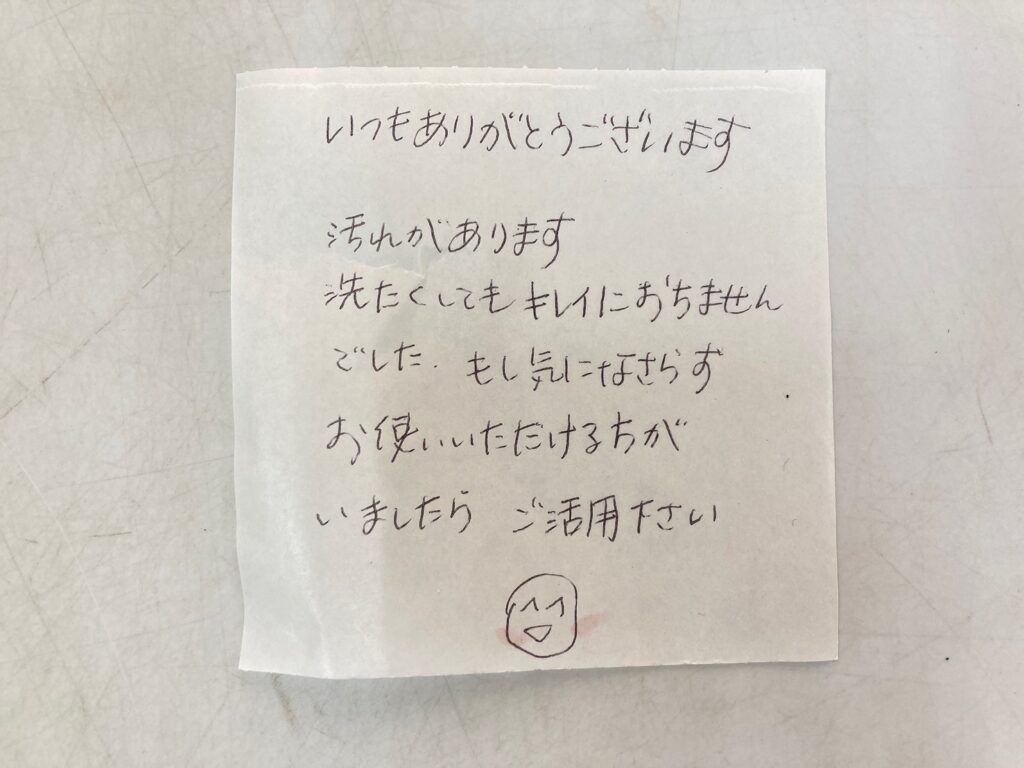 いつもありがとうございます
汚れがあります
洗たくしてもキレイにおちません
でした. もし気になさらず
お使いいただける方が
いましたら ご活用下さい